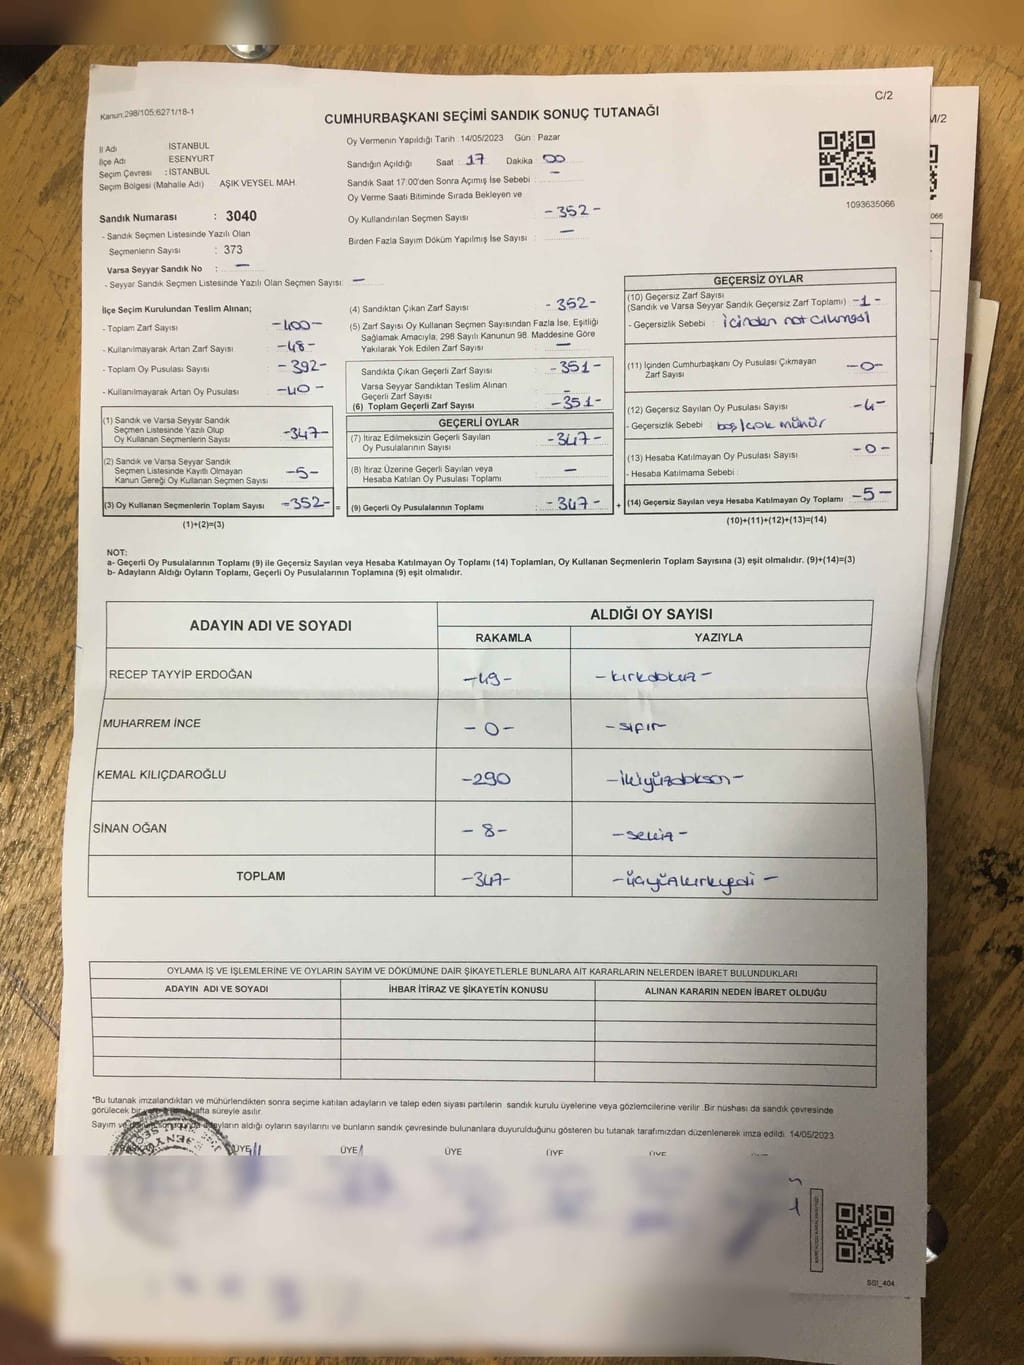 C/2
Kanun,298/105;6271/18-1
CUMHURBAŞKANI SEÇİMİ SANDIK SONUÇ TUTANAĞI
M/2
Oy Vermenin Yapıldığı Tarih : 14/05/2023 Gün : Pazar
İl Adı İSTANBUL
İlçe Adı ESENYURT
Seçim Çevresi : İSTANBUL
Seçim Bölgesi (Mahalle Adı) AŞIK VEYSEL MAH.
Sandığın Açıldığı Saat : 17 Dakika 00
Sandık Saat 17:00'den Sonra Açımış İse Sebebi : -
Oy Verme Saati Bitiminde Sırada Bekleyen ve
Oy Kullandırılan Seçmen Sayısı -352-
Birden Fazla Sayım Döküm Yapılmış İse Sayısı : -
1093635066
066
Sandık Numarası : 3040
- Sandık Seçmen Listesinde Yazılı Olan
Seçmenlerin Sayısı : 373
Varsa Seyyar Sandık No : -
- Seyyar Sandık Seçmen Listesinde Yazılı Olan Seçmen Sayısı: -
İlçe Seçim Kurulundan Teslim Alınan;
- Toplam Zarf Sayısı -400-
- Kullanılmayarak Artan Zarf Sayısı -48-
- Toplam Oy Pusulası Sayısı -392-
- Kullanılmayarak Artan Oy Pusulası -40-
(1) Sandık ve Varsa Seyyar Sandık
Seçmen Listesinde Yazılı Olup
Oy Kullanan Seçmenlerin Sayısı -347-
(2) Sandık ve Varsa Seyyar Sandık
Seçmen Listesinde Kayıtlı Olmayan
Kanun Gereği Oy Kullanan Seçmen Sayısı -5-
(3) Oy Kullanan Seçmenlerin Toplam Sayısı -352- =
(1)+(2)=(3)
(4) Sandıktan Çıkan Zarf Sayısı -352-
(5) Zarf Sayısı Oy Kullanan Seçmen Sayısından Fazla İse, Eşitliği
Sağlamak Amacıyla, 298 Sayılı Kanunun 98. Maddesine Göre
Yakılarak Yok Edilen Zarf Sayısı -
Sandıkta Çıkan Geçerli Zarf Sayısı -351-
Varsa Seyyar Sandıktan Teslim Alınan
Geçerli Zarf Sayısı -
(6) Toplam Geçerli Zarf Sayısı -351-
GEÇERLİ OYLAR
(7) İtiraz Edilmeksizin Geçerli Sayılan
Oy Pusulalarının Sayısı -347-
(8) İtiraz Üzerine Geçerli Sayılan veya
Hesaba Katılan Oy Pusulası Toplamı -
(9) Geçerli Oy Pusulalarının Toplamı -347- +
GEÇERSİZ OYLAR
(10) Geçersiz Zarf Sayısı
(Sandık ve Varsa Seyyar Sandık Geçersiz Zarf Toplamı) -1-
- Geçersizlik Sebebi : içinden not çıkması
(11) İçinden Cumhurbaşkanı Oy Pusulası Çıkmayan
Zarf Sayısı -0-
(12) Geçersiz Sayılan Oy Pusulası Sayısı -4-
- Geçersizlik Sebebi : boş/çok mühür
(13) Hesaba Katılmayan Oy Pusulası Sayısı -0-
- Hesaba Katılmama Sebebi :
(14) Geçersiz Sayılan veya Hesaba Katılmayan Oy Toplamı -5-
(10)+(11)+(12)+(13)=(14)
NOT:
a- Geçerli Oy Pusulalarının Toplamı (9) ile Geçersiz Sayılan veya Hesaba Katılmayan Oy Toplamı (14) Toplamları, Oy Kullanan Seçmenlerin Toplam Sayısına (3) eşit olmalıdır. (9)+(14)=(3)
b- Adayların Aldığı Oyların Toplamı, Geçerli Oy Pusulalarının Toplamına (9) eşit olmalıdır.
ADAYIN ADI VE SOYADI ALDIĞI OY SAYISI
RAKAMLA YAZIYLA
RECEP TAYYİP ERDOĞAN -49- -kırkdokuz-
MUHARREM İNCE -0- -sıfır
KEMAL KILIÇDAROĞLU -290 -ikiyüzdoksan-
SİNAN OĞAN -8- -sekiz-
TOPLAM -347- -üçyüzkırkyedi-
OYLAMA İŞ VE İŞLEMLERİNE VE OYLARIN SAYIM VE DÖKÜMÜNE DAİR ŞİKAYETLERLE BUNLARA AİT KARARLARIN NELERDEN İBARET BULUNDUKLARI
ADAYIN ADI VE SOYADI İHBAR İTİRAZ VE ŞİKAYETİN KONUSU ALINAN KARARIN NEDEN İBARET OLDUĞU
*Bu tutanak imzalandıktan ve mühürlendikten sonra seçime katılan adayların ve talep eden siyasi partilerin sandık kurulu üyelerine veya gözlemcilerine verilir .Bir nüshası da sandık çevresinde
görülecek bir hafta süreyle asılır.
Sayım ve adayların aldığı oyların sayılarını ve bunların sandık çevresinde bulunanlara duyurulduğunu gösteren bu tutanak tarafımızdan düzenlenerek imza edildi. 14/05/2023
ÜYE ÜYE ÜYE ÜYE ÜYE
SGI_404